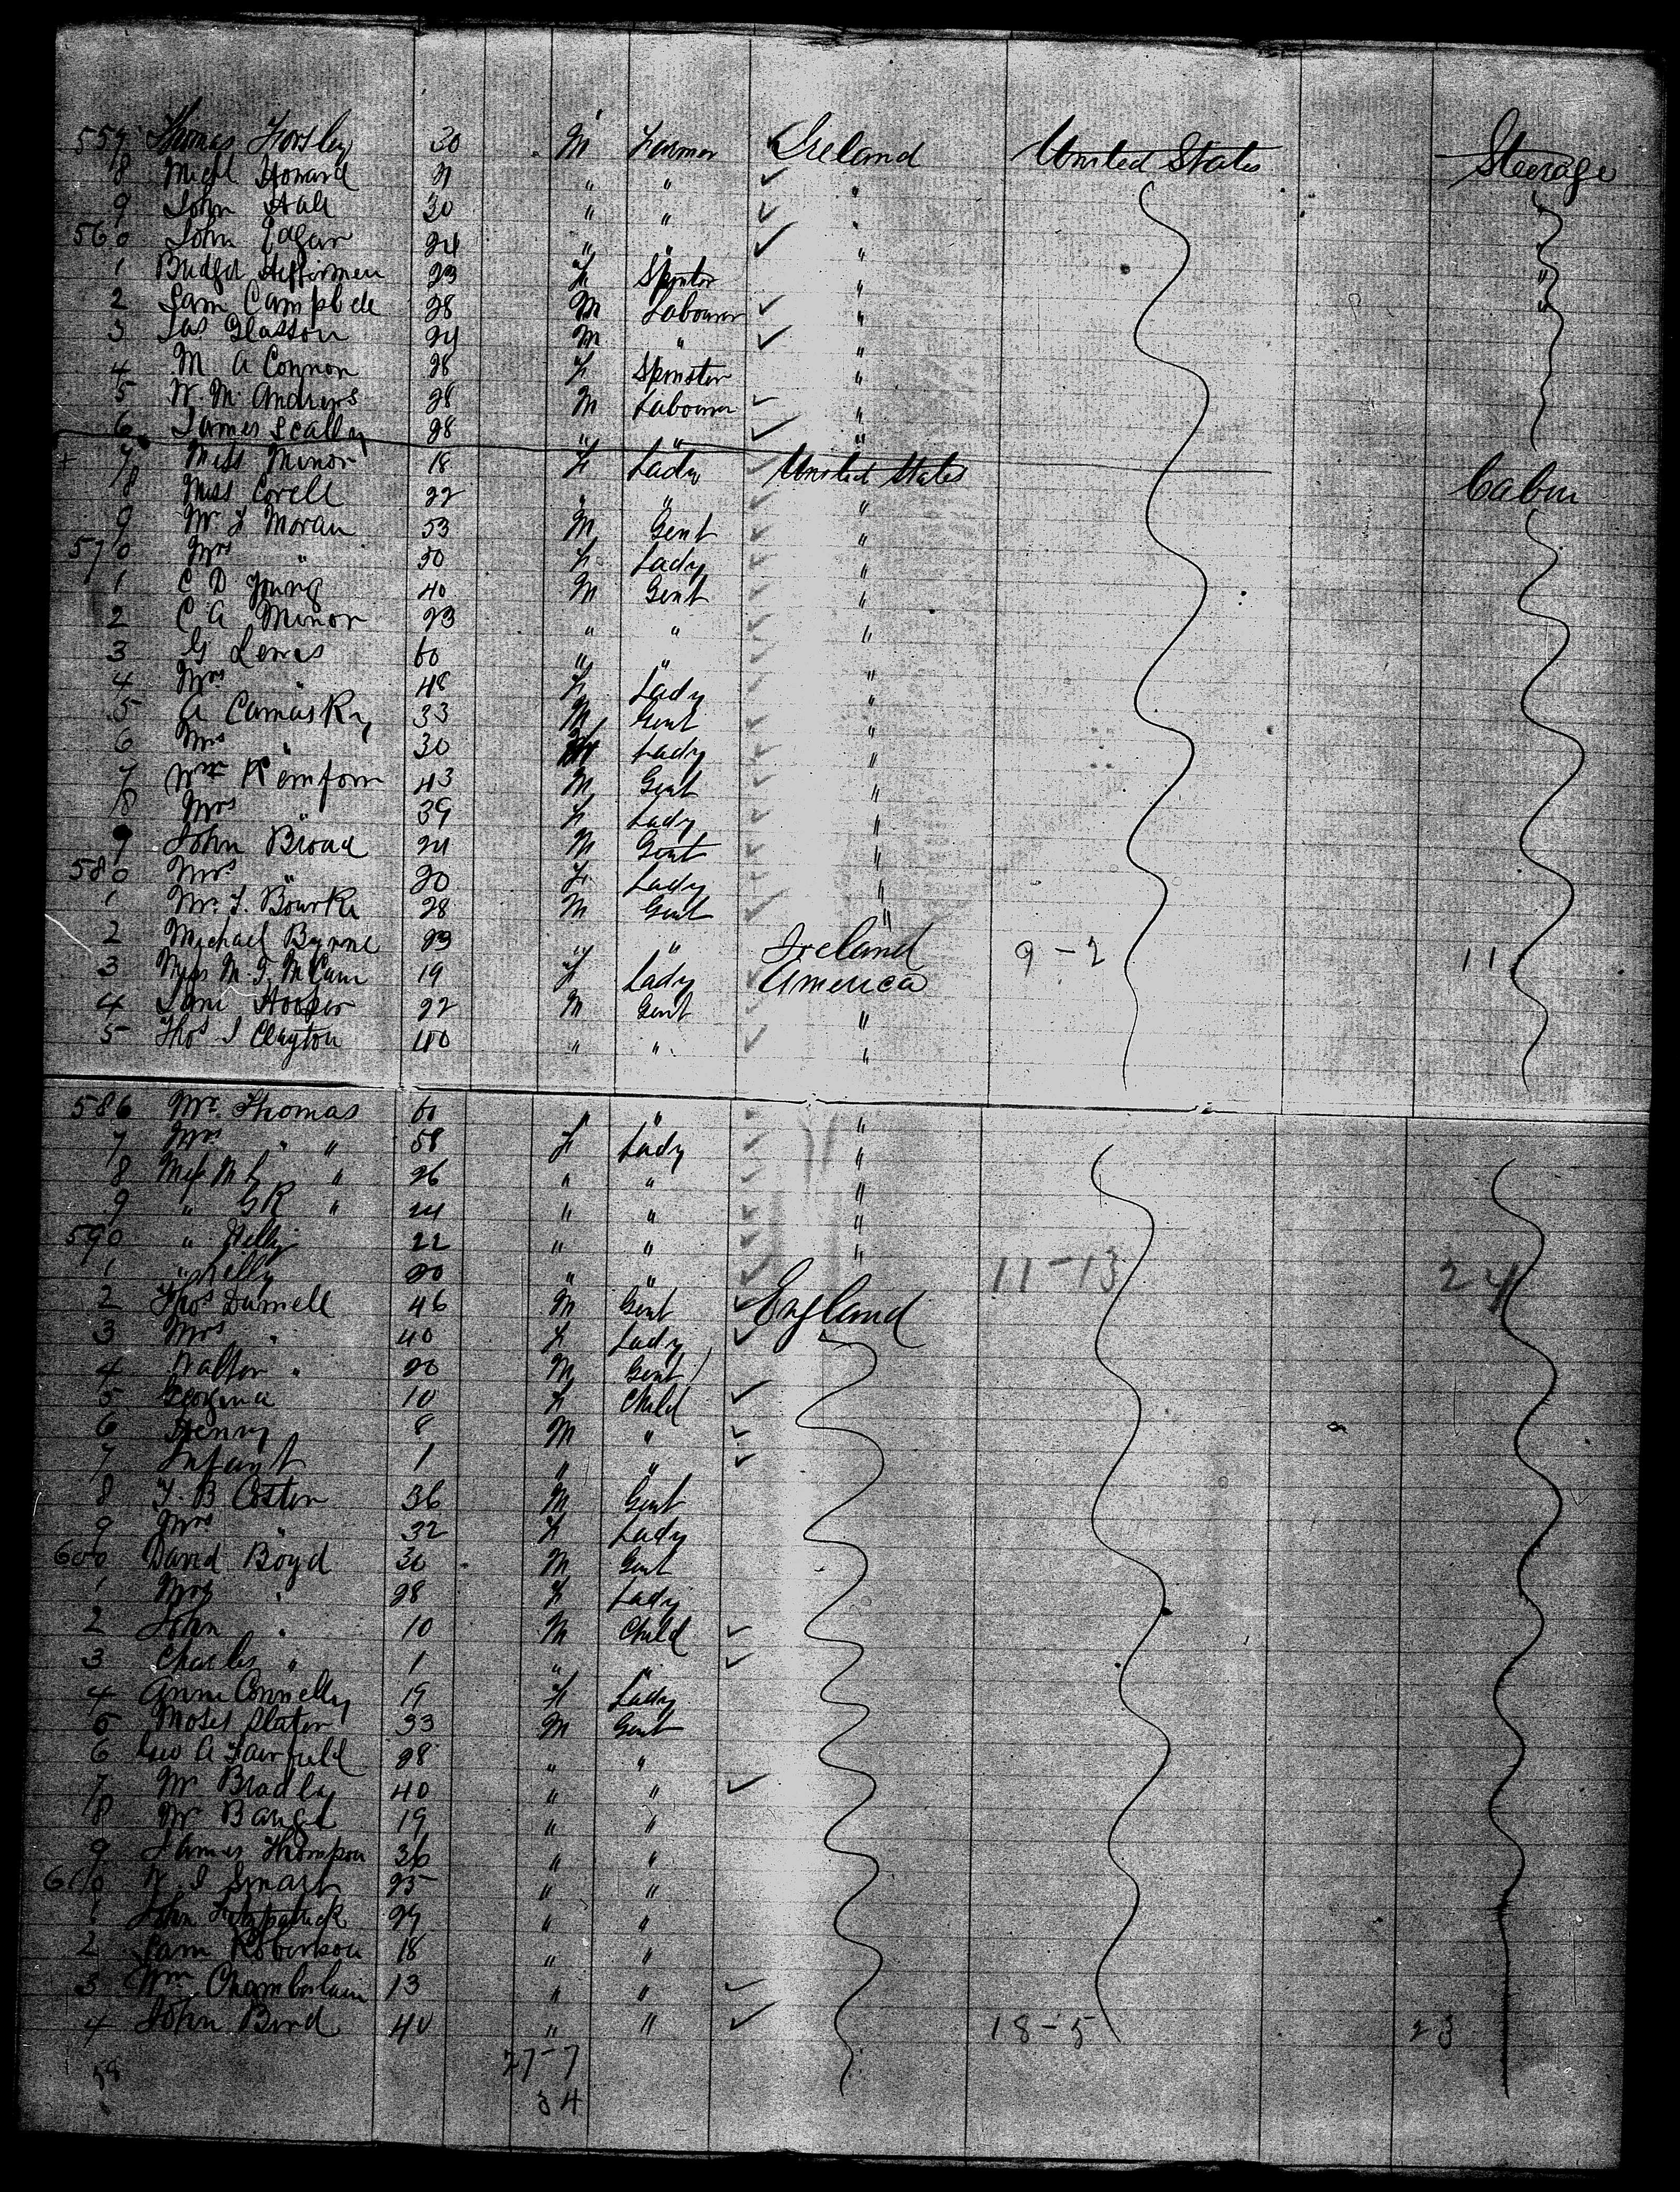 557 Thomas Horsley 30 M Farmer Ireland United States Steerage
8 Michl Howard 21 " " "
9 John Hall 30 " " "
560 John Edgar 24 " " "
1 Bridget Heffernen 23 F Spinster "
2 Sam Campbell 28 M Labourer "
3 Jas Glasson 24 M " "
4 M A Connor 28 F Spinster "
5 W. M. Andrews 28 M Labourer "
6 James Scally 28 " " "
+ 7 Miss Minor 18 F Lady United States Cabin
8 Miss Covell 22 " " "
9 Mr F Moran 53 M Gent "
570 Mrs " 50 F Lady "
1 C D Young 40 M Gent "
2 C A Minor 23 " " "
3 G Lewis 60 " " "
4 Mrs " 48 F Lady "
5 A Camasky 33 M Gent "
6 Mrs " 30 Lady "
7 Wm Remforn 43 M Gent "
8 Mrs " 39 F Lady "
9 John Broad 24 M Gent "
580 Mrs " 20 F Lady "
1 Mr. T. Bourke 28 M Gent "
2 Michael Byrne 23 " Ireland 9-2 11
3 Miss M. T. McCann 19 F Lady America
4 Sam Hooper 22 M Gent "
5 Thos J Clayton 40 " " "
586 Mr. Thomas 60 " " "
7 Mrs " " 58 F Lady "
8 Miss M " 26 " " "
9 " G R " 24 " " "
590 " 22 " " "
1 " Kelly 20 " " 11-13 24
2 Thos Darnell 46 M Gent England
3 Mrs " 40 F Lady
4 Walter " 20 M Gent
5 Georgina 10 F Child
6 Henry 8 M "
7 Infant 1 " "
8 T. B Coster 36 M Gent
9 Mrs " 32 F Lady
600 David Boyd 30 M Gent
1 Mrs " 28 F Lady
2 John " 10 M Child
3 Charles " 1 " "
4 Anne Connelly 19 F Lady
5 Moses Slater 33 M Gent
6 Geo A Fairfield 28 " "
7 Mr Bradley 40 " "
8 Mr 19 " "
9 James Thompson 36 " "
610 W. J Smart 25 " "
1 John Fitzpatrick 29 " "
2 Sam Robertson 18 " "
3 Wm Chamberlain 13 " "
4 John Bird 40 " " 18-5 23
58 27-7
34